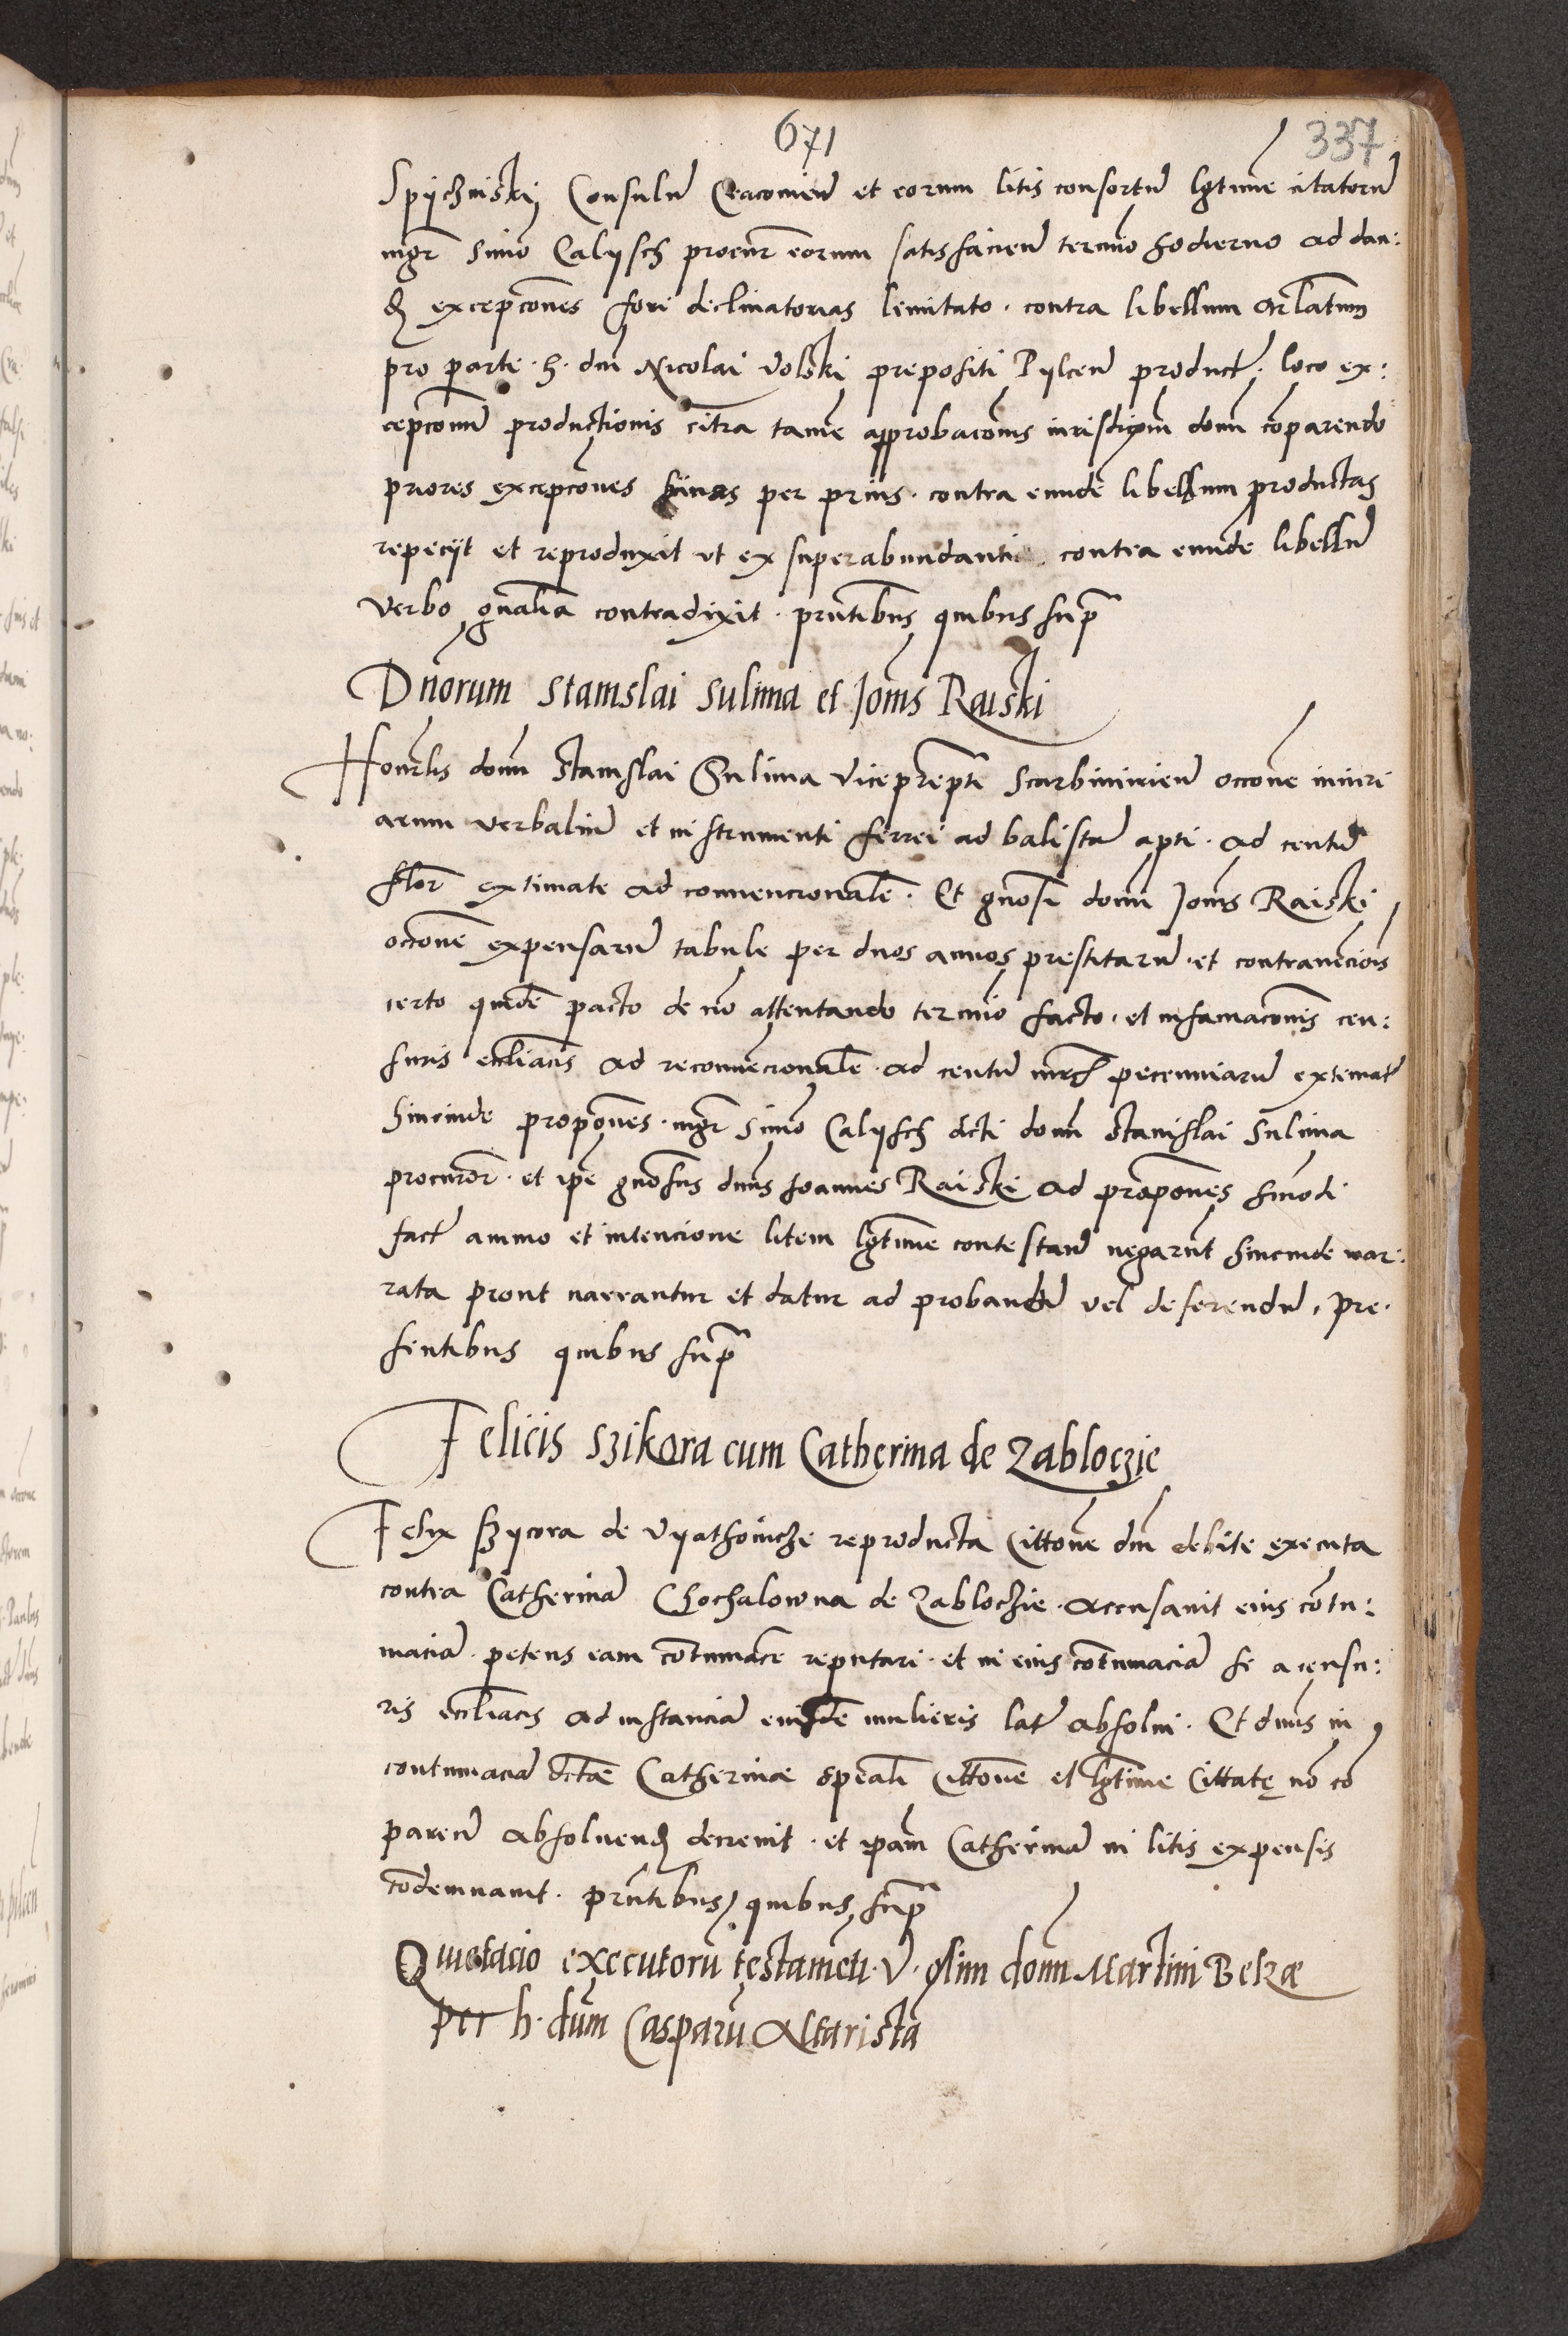 671
337
Spÿchniskÿ Consulũ Cracovieñ et eorum litis consortũ lgtime citatorũ
mgr Simõ Calÿsch procur̃ eorum satisfacieñ termĩo hodierno ad dan:
d excepcõnes fori declinatorias limitato . contra libellum
pro parte . h . dni Nicolai volski prepositi Pÿlceñ product . loco ex:
cepcõnũ productionis citra tamẽ approbacõnis iurisdixõnĩ domĩ cõparendo
priores excepcõnes suas per prius . contra eundẽ libellum productas
repeciÿt et reproduxit ut ex superabundantia . contra eundẽ libellũ
verbo gnalia contradixit . prñtibus quibus supra
Dnorum Stanislai Sulima et Joñis Raiski
Honrlis domĩ Stanislai Sulima viceprepti Scarbimirieñ occõne iniuri
arum verbaliũ et instrumenti ferrei ad balistã apti . ad centũ
flor extimate ad convencionalẽ . Et gnosi domĩ Joñis Raiski
occõne expensarũ tabule per duos annos prestitarũ . et contravencõis
certo quidẽ pacto de nõ attentando termĩo facto . et infamacõnis cen:
suris eccliacis ad reconvencionalẽ . ad centũ mrc̃ pecuniarũ extimat
hincinde propõnes . mgr Simõ Calÿsch dcti domĩ Stanislai Sulima
procurõr . et ipẽ gnosus dnus Joannes Raiski ad propõnes hmõdi
fact animo et intencione litem lgtime contestand negarũt hincinde nar:
rata prout narrantur et datur ad probandũ vel deferendũ . pre:
sentibus quibus supra
Felicis Szikora cum Catherina de Zabloczie
Felix Szÿcora de Vÿathovicze reproducta Cittõne dnĩ debite executa
contra Catherinã Chochalowna de Zabloczie . accusavit eius cõtu:
maciã . petens eam cõtumacẽ reputari . et in eius cõtumaciã se a censu:
ris eccliacis ad instanciã eiusdẽ mulieris lat absolvi . Et dnus in
contumaciã dctae Catherinae speali Cittõne et lgtime Cittatę nõ cõ
pareñ absolvend decrevit . et ipam Catherinã in litis expensis
cõdemnavit . prñtibus quibus supra
Quietacio executorũ testamẽti . V . olim domĩ Martini Bekæ
per h . dnum Casparũ Altaristã